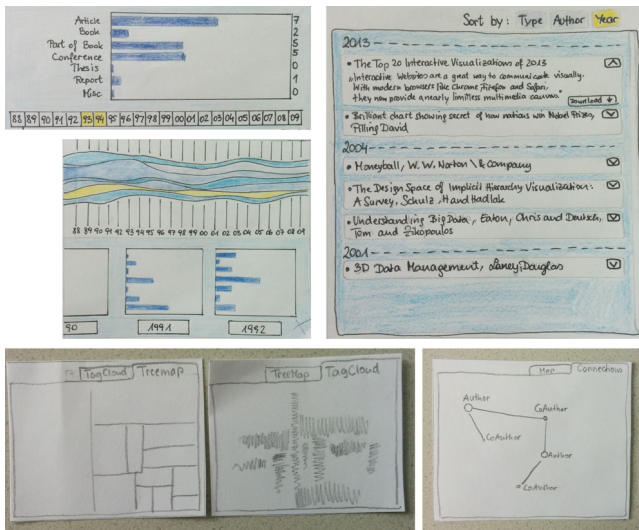 Article 7
Book 2
Part of Book 5
Conference 5
Thesis 0
Report 1
Misc 0
88 89 90 91 92 93 94 95 96 97 98 99 00 01 02 03 04 05 06 07 08 09
88 89 90 91 92 93 94 95 96 97 98 99 00 01 02 03 04 05 06 07 08 09
90 1991 1992
Sort by: Type Author Year
2013
• The Top 20 Interactive Visualizations of 2013
"Interactive Websites are a great way to communicate visually.
With modern browsers like Chrome, Firefox and Safari,
they now provide a nearly limitless multimedia canvas."
Download
• Brilliant chart showing secret of how nations win Nobel Prizes,
Pilling David
2004
• Moneyball, W. W. Norton \& Company
• The Design Space of Implicit Hierarchy Visualization:
A Survey, Schulz, Hand Hadlak
• Understanding Big Data, Eaton, Chris and Deutsch,
Tom and Zikopoulos
2001
• 3D Data Management, Laney, Douglas
TagCloud Treemap
TreeMap TagCloud
Map Connections
Author
CoAuthor
CoAuthor
Author
CoAuthor